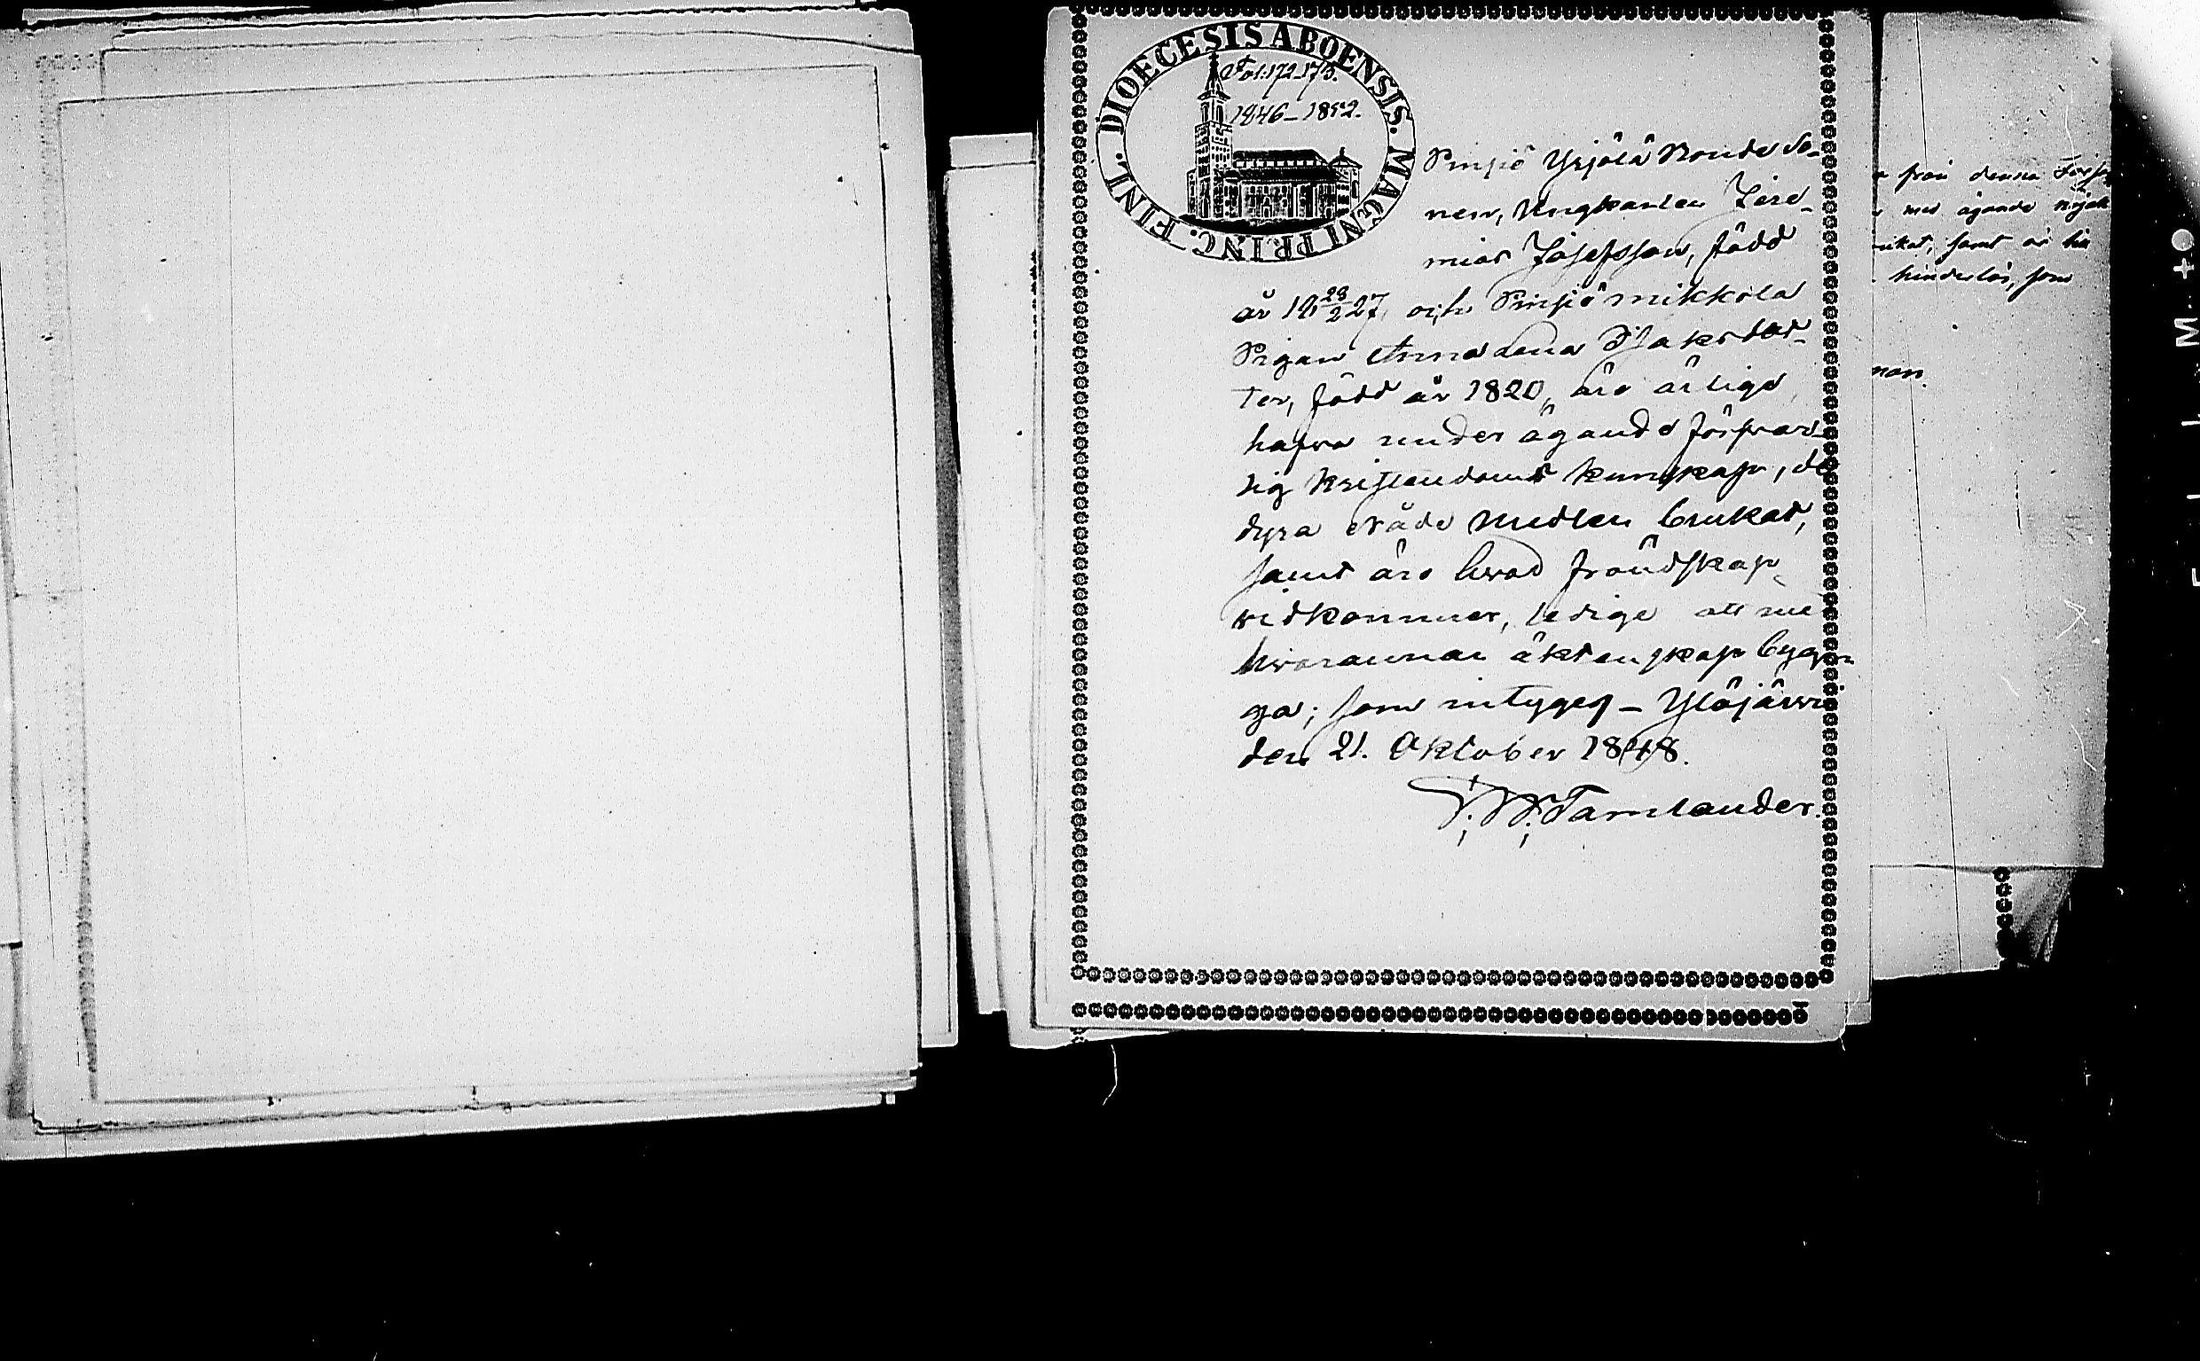 DIOECESIS ABOENSIS. MAGNI PRINC. FINL.
Fol: 172_173.
1846_1852.
Pinsiö Yrjölä Bonde So_
nen, Ungkarlen Jere_
mias Josefsson, född
år 18 28/2 27, och Pinsiö mikkola
Pigan Anna Lena Isaksdot_
ter, född år 1820, äro ärlige,
hafva under ägande försvar_
lig Kristendoms kunskap, de
dyra Nåde medlen brukat,
samt äro hvad frändskap
vidkommer, ledige att me
hvarannan äktenskap byg_
ga; som intygeg _ Ylöjärvi
den 21. Oktober 1848.
F. W. Tamlander.
från denna Försa
med ägande nöjak
rukat, samt är
hinderlös, som
man.